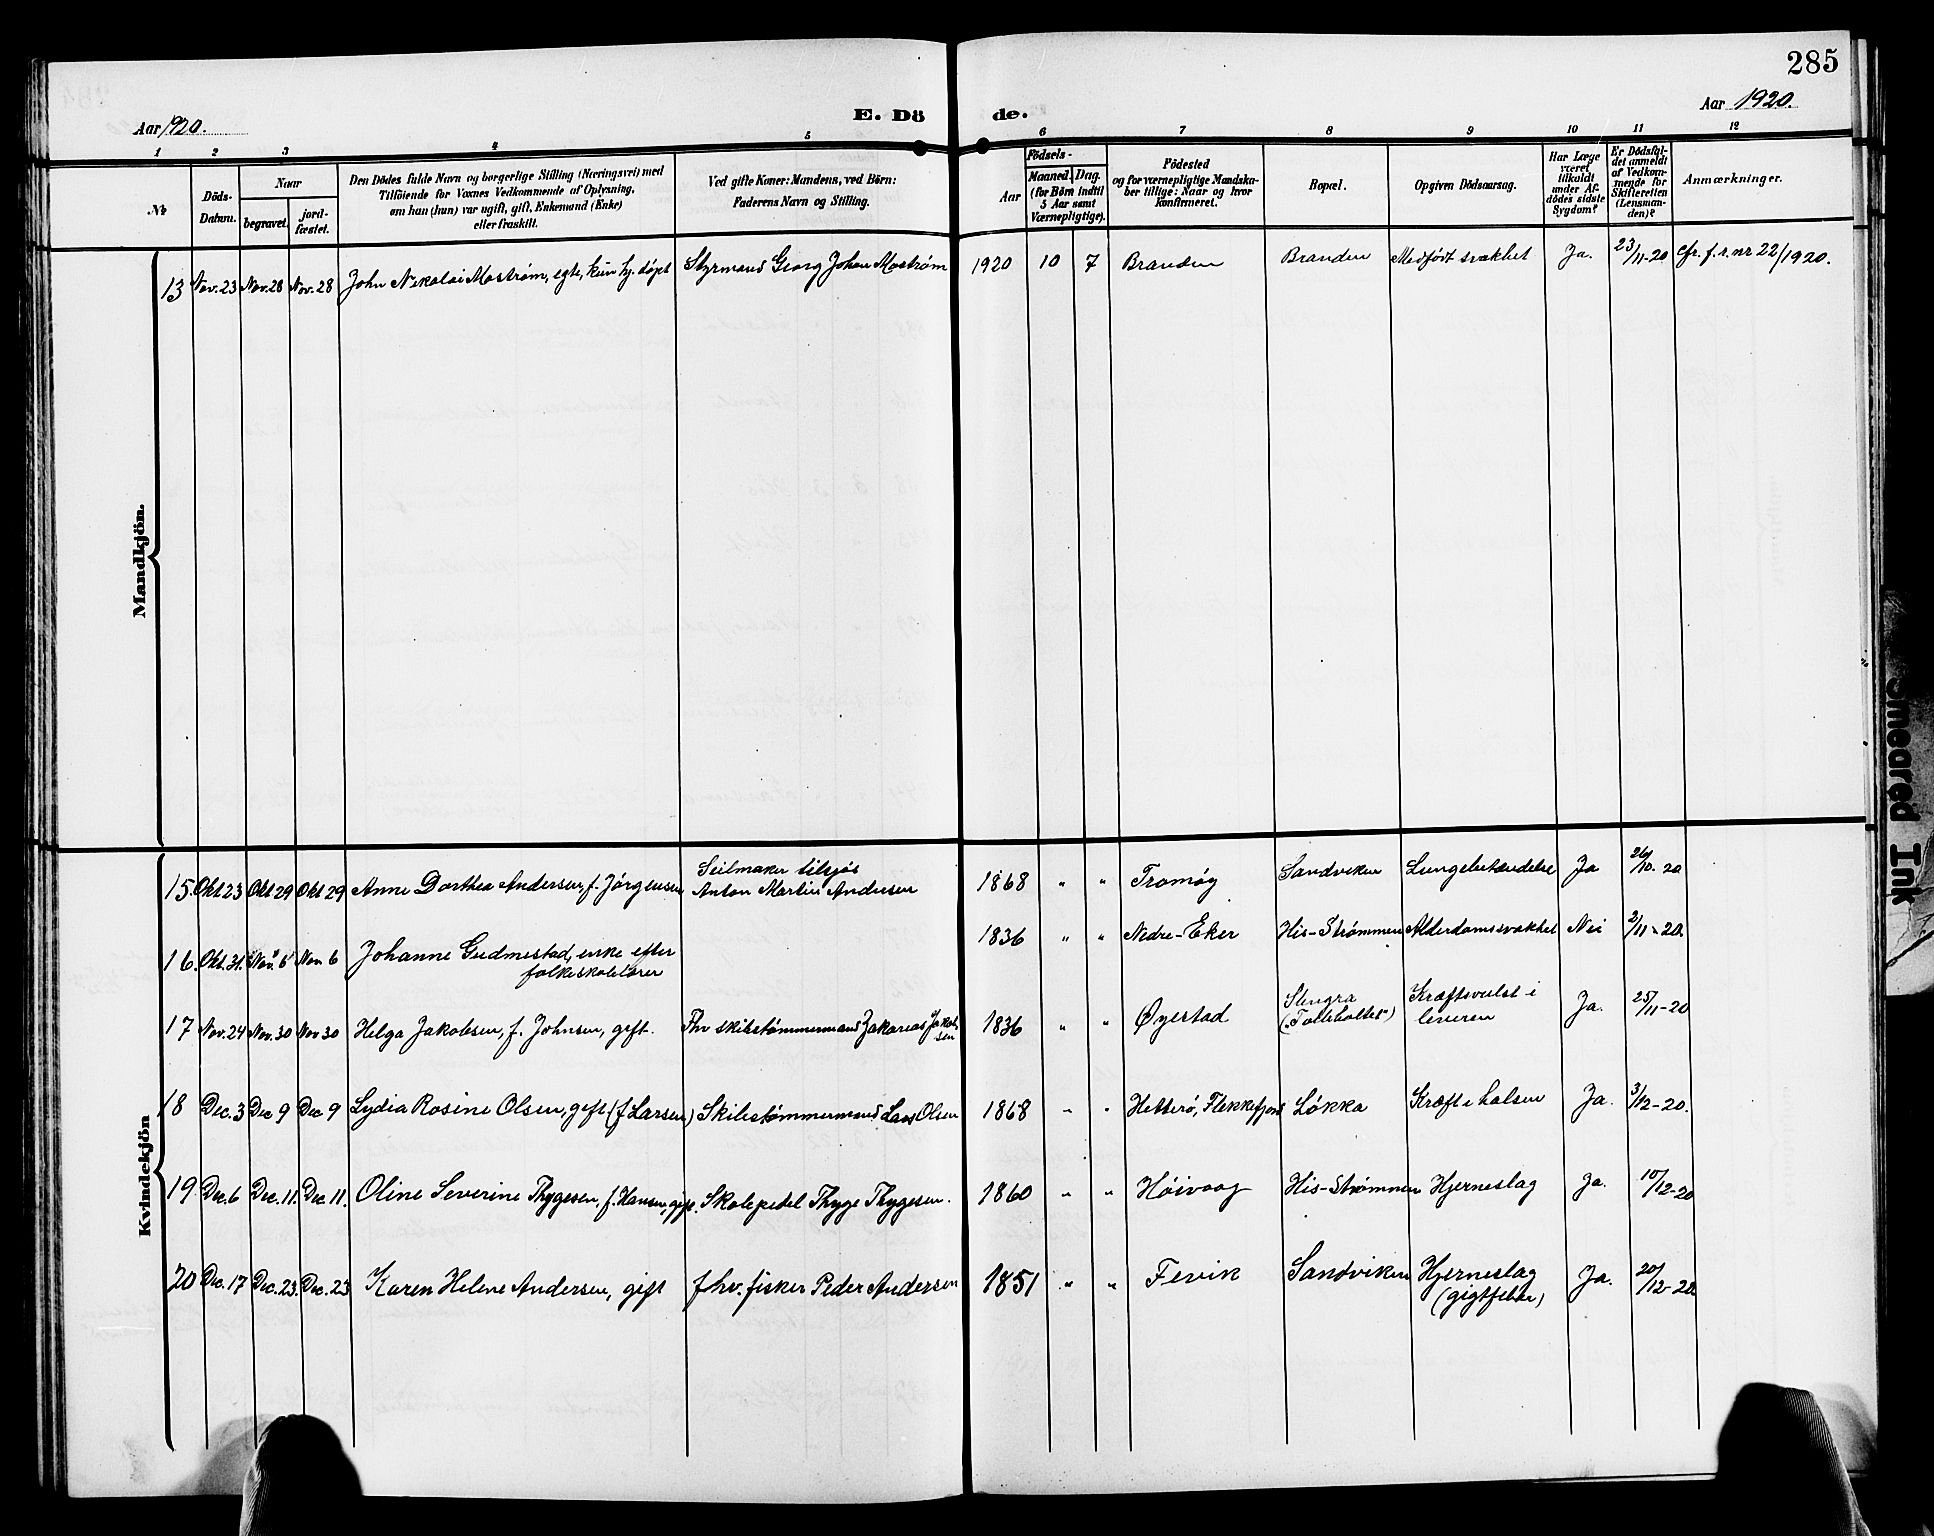 285
Aar 1920.
E. Dö de.
Aar 1920.
1 2 3 4 5 6 7 8 9 10 11 12
№
Döds-
Datum.
Naar
begravet.
jord-
fæstet.
Den Dödes fulde Navn og borgerlige Stilling (Næringsvei) med
Tilföiende for Voxnes Vedkommende af Oplysning,
om han (hun) var ugift, gift, Enkemand (Enke)
eller fraskilt.
Ved gifte Koner: Mandens, ved Börn:
Faderens Navn og Stilling.
Födsels-
Aar
Maaned. Dag.
(for Börn indtil
5 Aar samt
Værnepligtige).
Födested
og for værnepligtige Mandska-
ber tillige: Naar og hvor
konfirmeret.
Bopæl.
Opgiven Dödsaarsag.
Har Læge
været
tilkaldt
under Af-
dödes sidste
Sygdom?
Er Dödsfal-
det anmeldt
af Vedkom-
mende for
Skifteretten
(Lensman-
den)?
Anmærkninger.
Mandkjön.
13 Nov. 23 Nov. 28 Nov. 28 John Nikolai Mostrøm, egte, kun hj. døpt Styrmand Georg Johan Mostrøm 1920 10 7 Branden Branden Medfødt svakhet Ja. 23/11-20 cfr. f. r. nr 22/1920.
Kvindekjön
15. Okt 23 Okt 29 Okt 29 Anne Dorthea Andersen, f. Jørgensen Seilmaker tilsjøs
Anton Martin Andersen 1868 " " Tromøy Sandviken Lungebetændelse Ja 26/10-20
16. Okt. 31. Nov. 6 Nov. 6 Johanne Gudmestad, enke efter
folkeskolelærer 1836 " " Nedre-Eker His-Strømmen Alderdomssvakhet Nei 2/11-20.
17 Nov. 24 Nov. 30 Nov 30 Helga Jakobsen, f. Johnsen, gift. Fhv skibstømmermand Zakarias Jakob-
sen 1836 " " Øyestad Stengra
Kræftsvulst i
leveren Ja. 25/11-20
18 Dec. 3 Dec 9 Dec 9 Lydia Rosine Olsen, gift (f. Larsen) Skibstømmermand Lars Olsen 1868 " " Hetterø, Flekkefjord Løkka Kræft i halsen Ja. 3/12-20.
19 Dec. 6 Dec. 11. Dec. 11. Oline Severine Thygesen, f. Hansen, gift. Skolepedel Thyge Thygesen. 1860 " " Høivaag His-Strømmen Hjerneslag Ja. 10/12-20
20 Dec. 17 Dec. 23. Dec. 23 Karen Helene Andersen, gift fhv. fisker Peder Andersen 1851 " " Fevik Sandviken Hjerneslag
(gigtfeber) Ja. 20/12-20
Smeared Ink